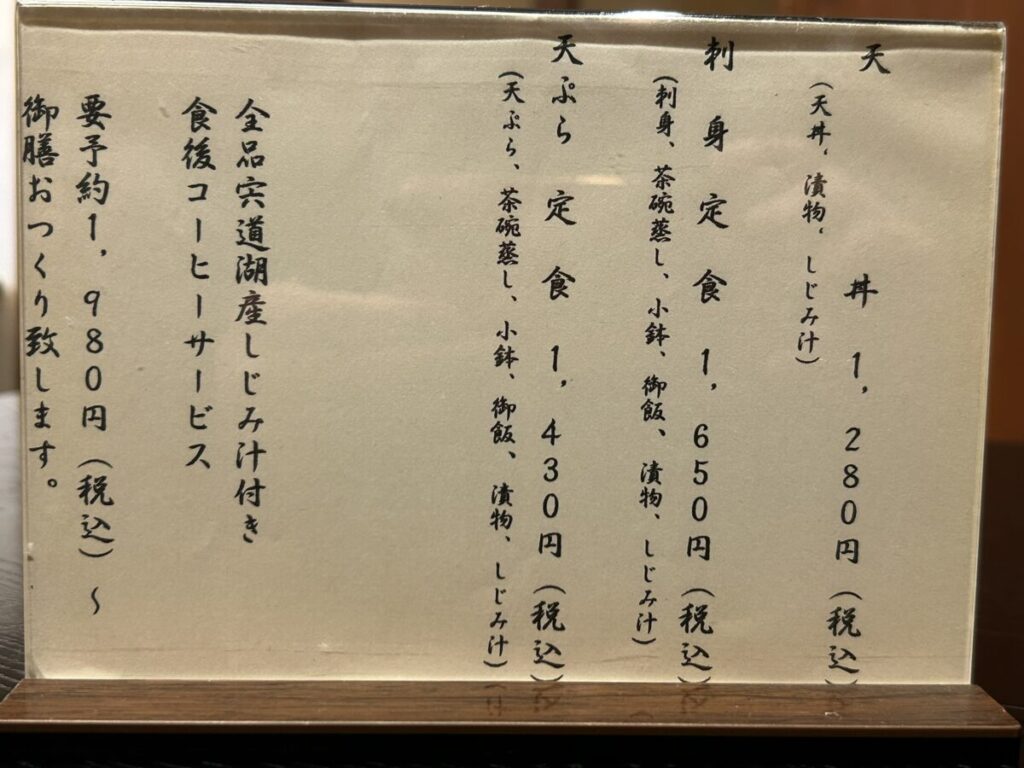 天丼 1,280円(税込)
(天丼、漬物、しじみ汁)
刺身定食 1,650円(税込)
(刺身、茶碗蒸し、小鉢、御飯、漬物、しじみ汁)
天ぷら定食 1,430円(税込)
(天ぷら、茶碗蒸し、小鉢、御飯、漬物、しじみ汁)
全品宍道湖産しじみ汁付き
食後コーヒーサービス
要予約1,980円(税込)～
御膳おつくり致します。